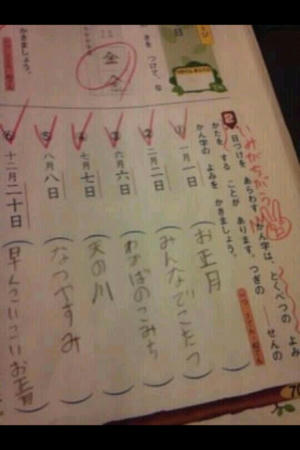 いみがちがう
2 日づけを あらわす かん字は、とくべつの よみ
かたを する ことが あります。つぎの ――せんの
かん字の よみを かきましょう。
① 一月一日（お正月）
② 二月二日（みんなでこたつ）
③ 六月六日（わかばのこみち）
④ 七月七日（天の川）
⑤ 八月八日（なつやすみ）
⑥ 十二月二十日（早くこいこいお正月）
日
きを つけて、な
かきましょう。